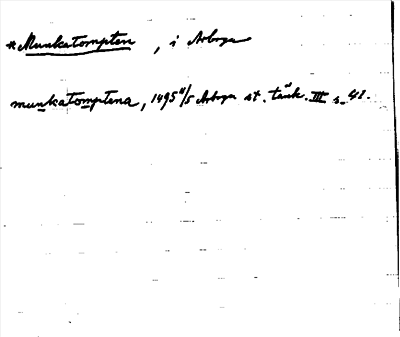 *Munkatompten, i Arboga
munkatomptena, 1495 11/5 Arboga st. tänk. III s. 41.